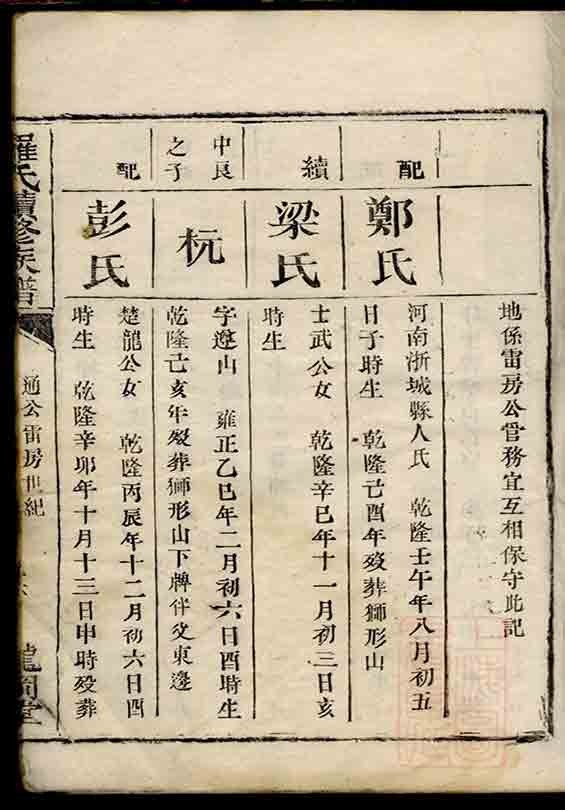 地係雷房公管務宜互相保守此記
配
鄭氏
河南浙城縣人氏 乾隆壬午年八月初五
日子時生 乾隆己酉年歿葬獅形山
續
梁氏
士武公女 乾隆辛巳年十一月初三日亥
時生
中良
之子
杬
字遼山 雍正乙巳年二月初六日酉時生
乾隆己亥年歿葬獅形山下牌伴父東邊
配
彭氏
楚龍公女 乾隆丙辰年十二月初六日酉
時生 乾隆辛卯年十月十三日申時歿葬
羅氏續修族譜
通公雷房世紀
龍閣堂